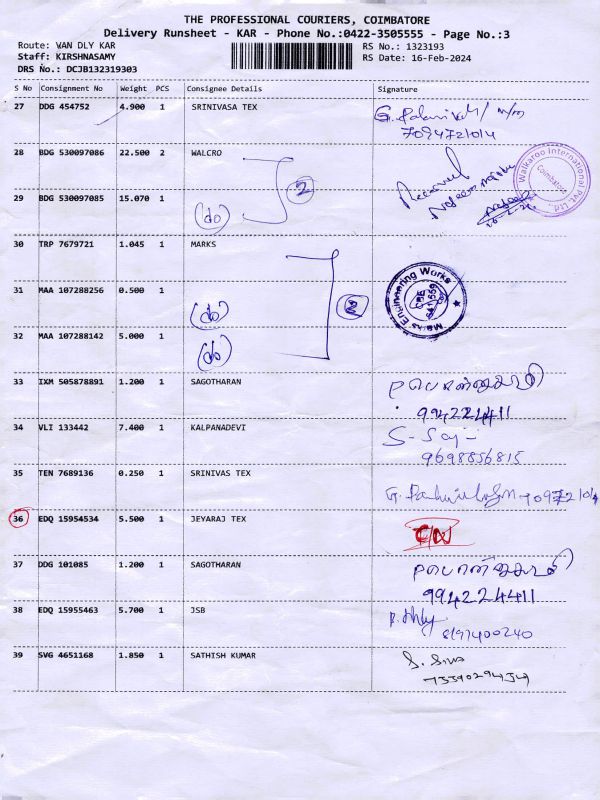 THE PROFESSIONAL COURIERS, COIMBATORE
Delivery Runsheet - KAR - Phone No.:0422-3505555 - Page No.:3
Route: VAN DLY KAR RS No.: 1323193
Staff: KIRSHNASAMY RS Date: 16-Feb-2024
DRS No.: DCJB132319303
S No Consignment No Weight PCS Consignee Details Signature
27 DDG 454752 4.900 1 SRINIVASA TEX
7094721014
28 BDG 530097086 22.500 2 WALCRO
Walkaroo International Pvt. Ltd.
Coimbatore
2
29 BDG 530097085 15.070 1
(do)
30 TRP 7679721 1.045 1 MARKS
Marks Engineering Works
31 MAA 107288256 0.500 1
(do)
32 MAA 107288142 5.000 1
(do)
33 IXM 505878891 1.200 1 SAGOTHARAN
994224411
34 VLI 133442 7.400 1 KALPANADEVI
9698856815
35 TEN 7689136 0.250 1 SRINIVAS TEX
36 EDQ 15954534 5.500 1 JEYARAJ TEX
37 DDG 101085 1.200 1 SAGOTHARAN
9942224411
38 EDQ 15955463 5.700 1 JSB
8197400240
39 SVG 4651168 1.850 1 SATHISH KUMAR